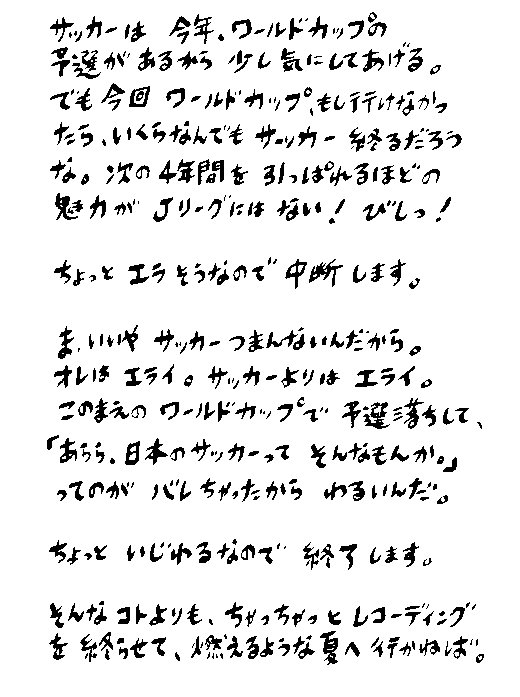 サッカーは 今年、ワールドカップの
予選があるから 少し気にしてあげる。
でも今回 ワールドカップ、もし行けなかっ
たら、いくらなんでも サッカー 終るだろう
な。次の4年間を 引っぱれるほどの
魅力が Jリーグには ない！ びしっ！
ちょっと エラそうなので 中断します。
ま、いいや サッカーつまんないんだから。
オレは エライ。サッカーよりは エライ。
このまえの ワールドカップで 予選落ちして、
「あらら、日本のサッカーって そんなもんか。」
ってのが バレちゃったから わるいんだ。
ちょっと いじわるなので 終了します。
そんなコトよりも、ちゃっちゃっと レコーディング
を 終らせて、燃えるような夏へ 行かねば。